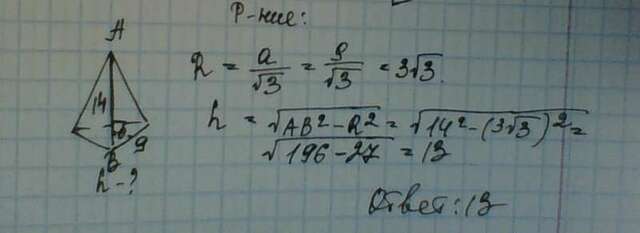 Р-ние:
A
14
6
9
B
h - ?
R = a/√3 = 9/√3 = 3√3.
h = √(AB² - R²) = √(14² - (3√3)²) =
√(196 - 27) = 13
Ответ: 13